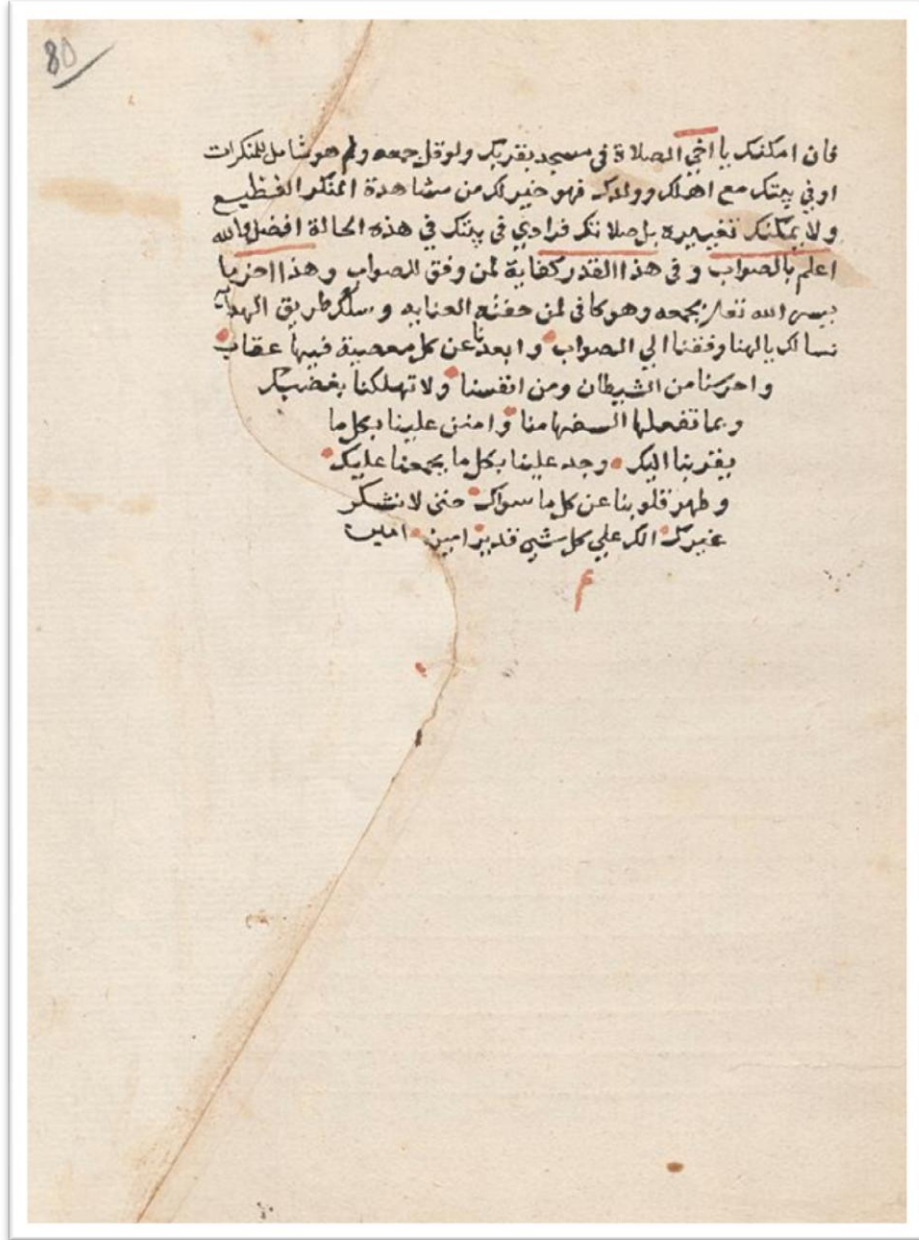 80
فان امكنك يا اخي الصلاة في مسجد بقربك ولو قل جمعه ولم هو شامل للمنكرات
او في بيتك مع اهلك وولدك فهو خير لك من مشاهدة المنكر الفظيع
ولا يمكنك تغييره بل صلاتك فرادي في بيتك في هذه الحالة افضل والله
اعلم بالصواب وفي هذا القدر كفاية لمن وفق للصواب وهذا اخر ما
يسر الله تعالى بجمعه وهو كافي لمن حفته العنايه وسلك طريق الهدايه
نسالك يا الهنا وفقنا الي الصواب وابعدنا عن كل معصية فيها عقاب
واحرسنا من الشيطان ومن انفسنا ولا تهلكنا بغضبك
وبما تفعلها السفها منا وامنن علينا بكل ما
يقربنا اليك وجد علينا بكل ما يجمعنا عليك
وطهر قلوبنا عن كل ما سواك حتي لا نشكر
غيرك انك علي كل شي قدير امين امين
م